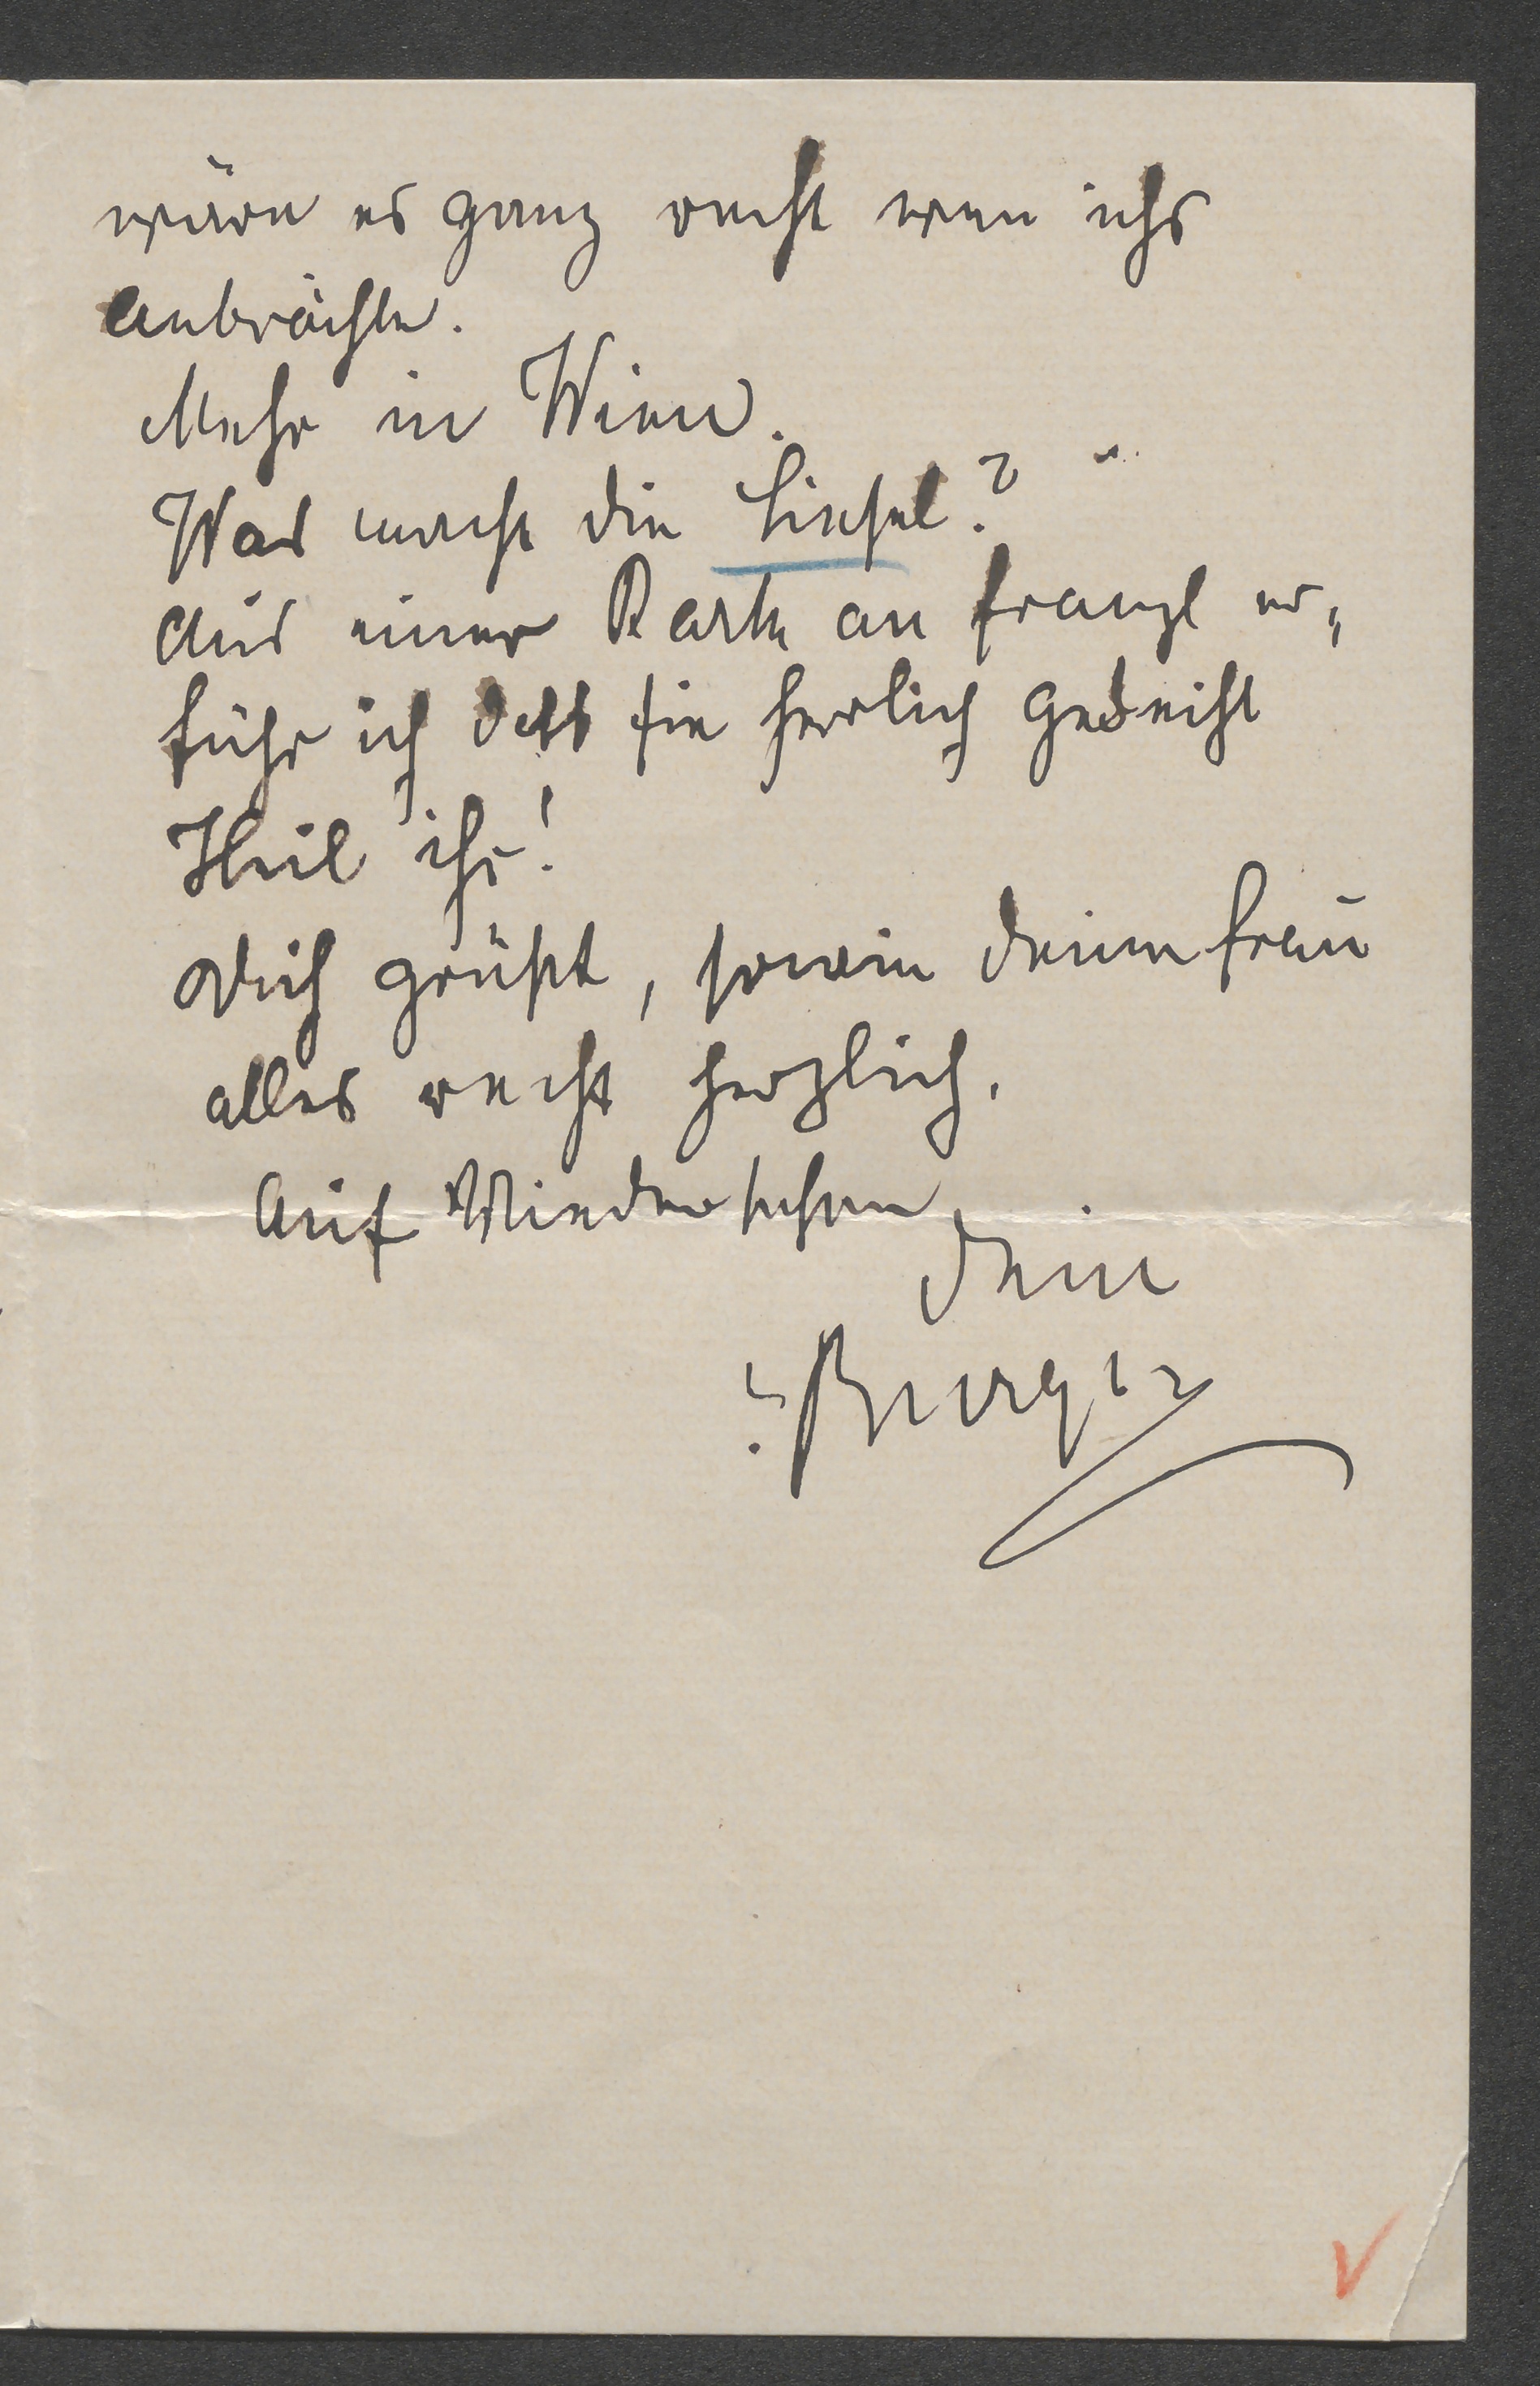 wäre es ganz recht wen ichs
anbrächte.
Mehr in Wien.
Was macht die Liesel?
Aus einer Karte an Franzl er„
fuhr ich daß sie herrlich gedeiht
Heil ihr!
Dich grüßt, sowie deine Frau
alles recht herzlich.
Auf Wiedersehen
dein
Burger